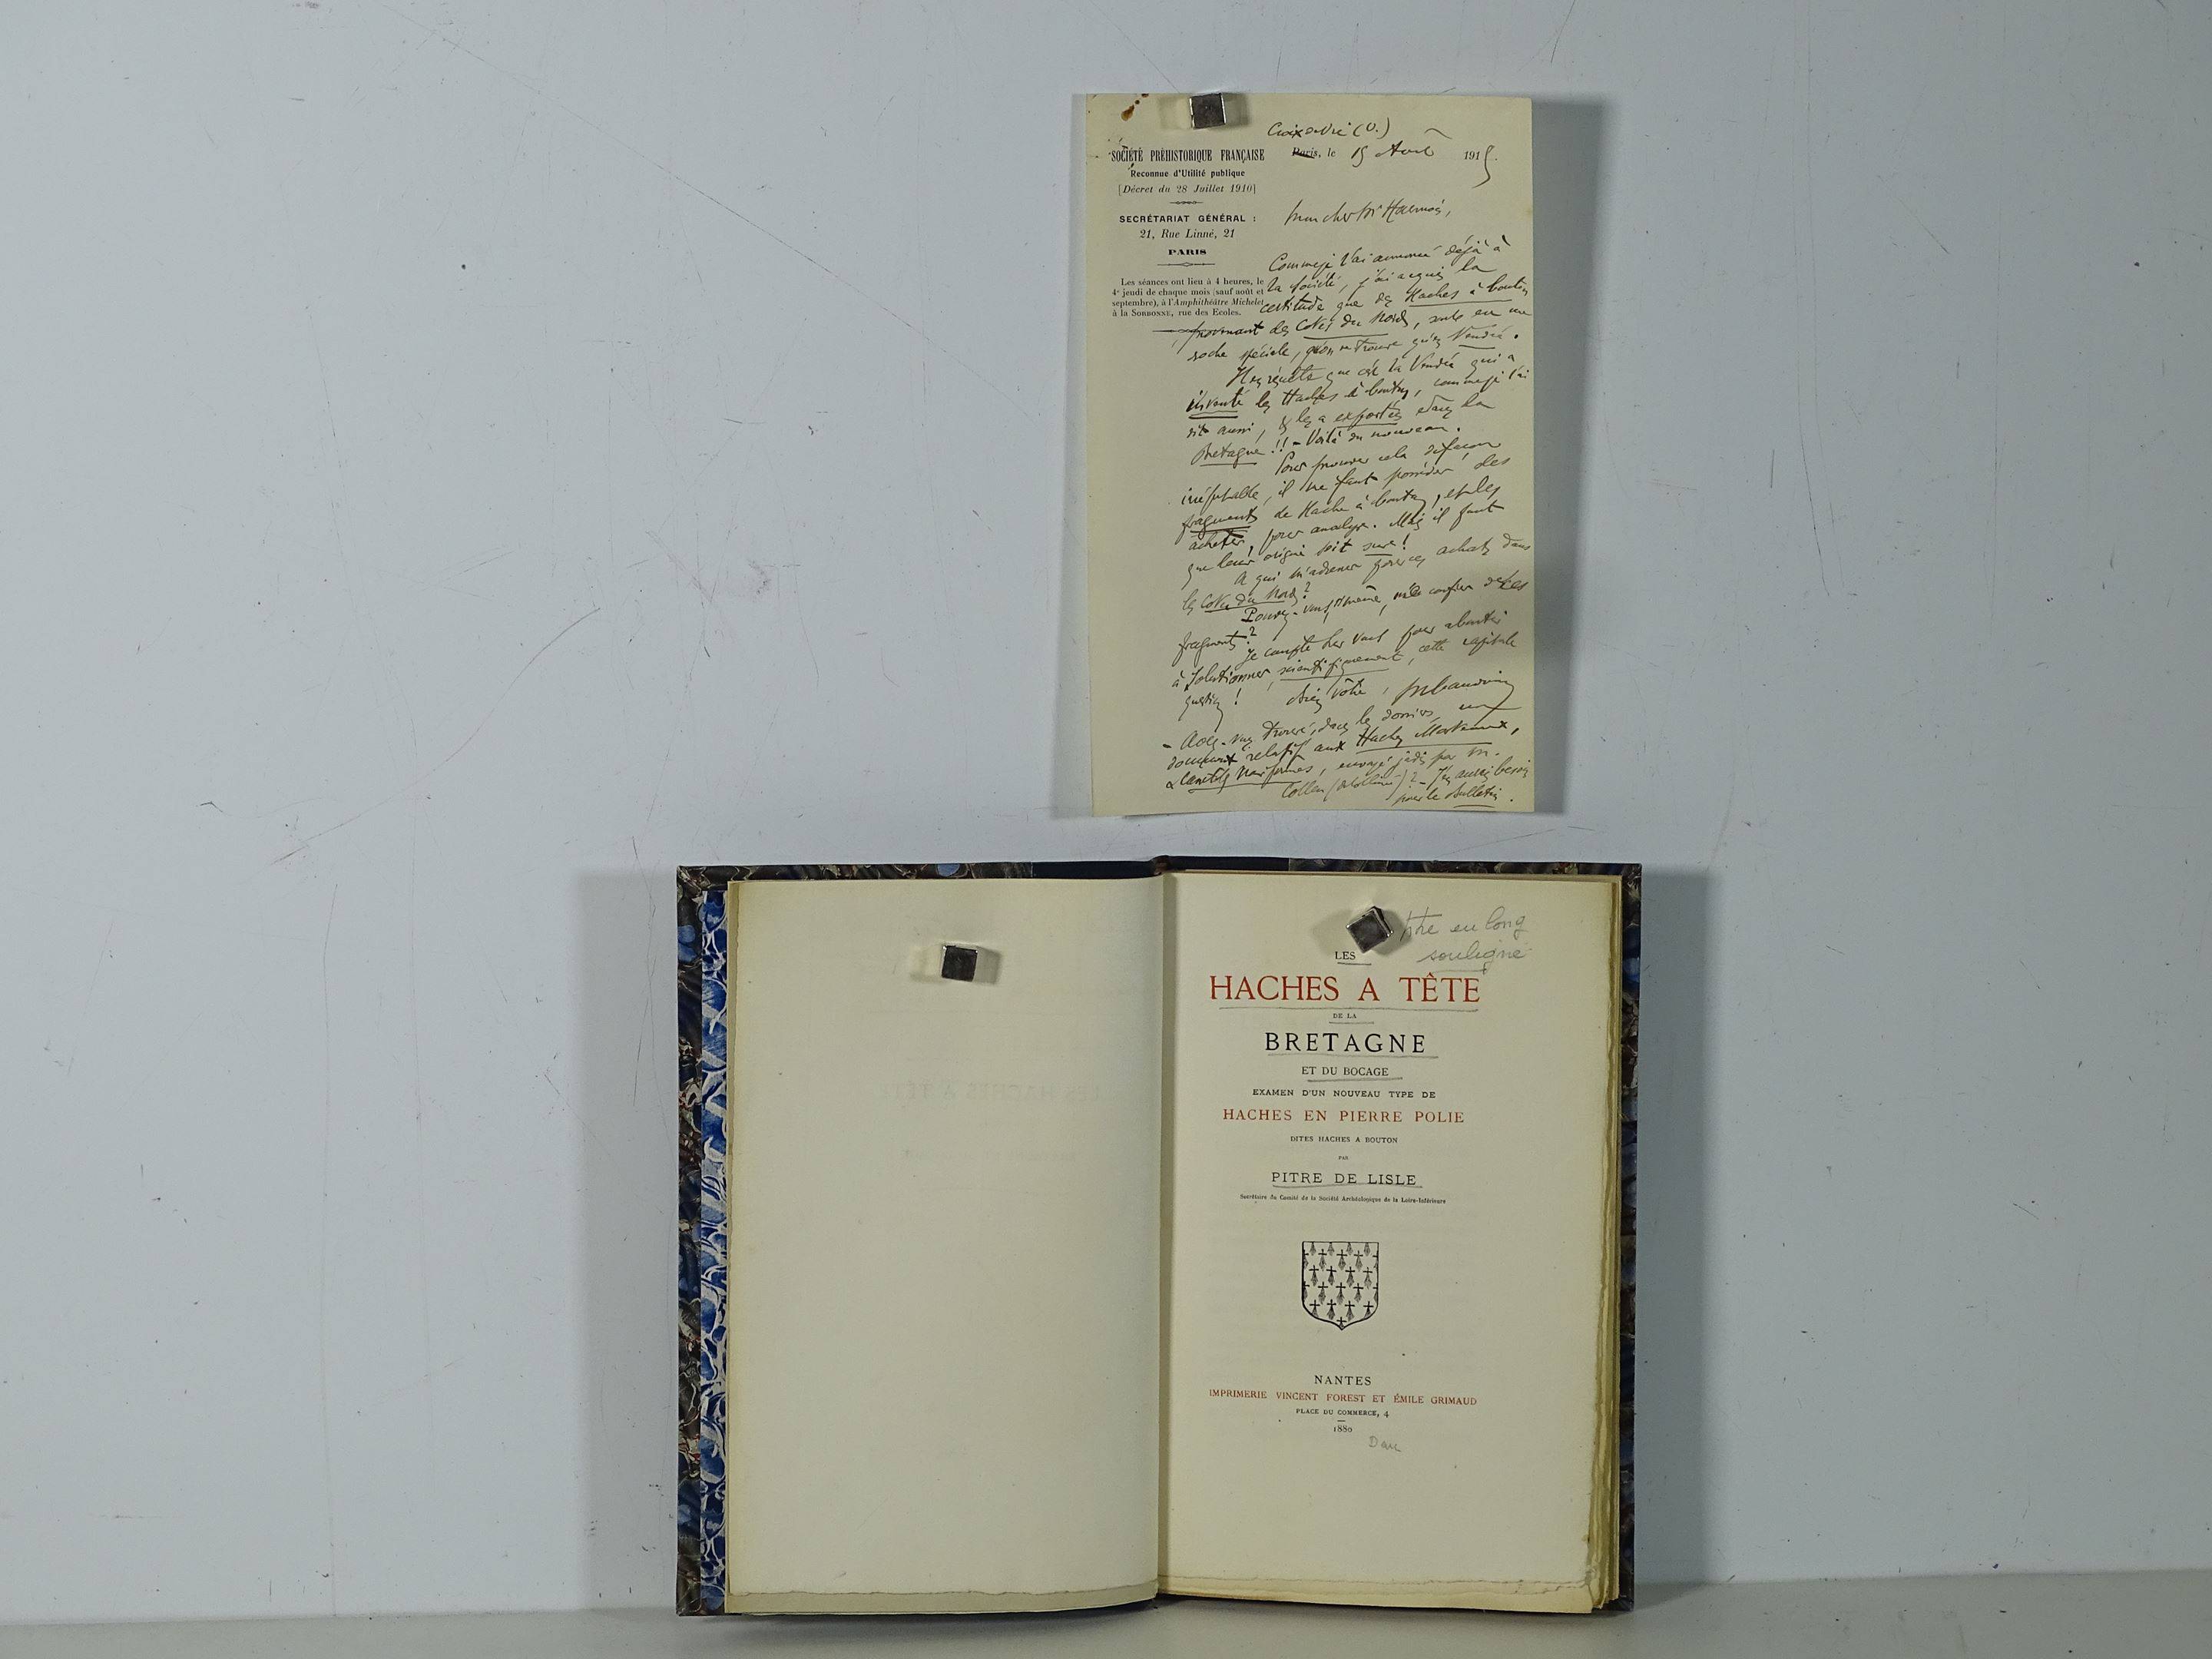 SOCIÉTÉ PRÉHISTORIQUE FRANÇAISE
Reconnue d'Utilité publique
[Décret du 28 Juillet 1910]
SECRÉTARIAT GÉNÉRAL :
21, Rue Linné, 21
PARIS
Les séances ont lieu à 4 heures, le
4e jeudi de chaque mois (sauf août et
septembre), à l'Amphithéâtre Michelet
à la SORBONNE, rue des Ecoles.
Croix de Vie (V.)
Paris, le 15 Avril 1915.
Mon cher
Comme je l'ai annoncé déjà à
la Société, j'ai acquis la
certitude que des Haches à bouton
provenant des Côtes du Nord, sont en une
roche spéciale, qu'on ne trouve qu'en Vendée.
Il en résulte que c'est la Vendée qui a
inventé les Haches à bouton, comme je l'ai
dit aussi, & les a exportées dans la
Bretagne !! - Voilà du nouveau.
Pour prouver cela de façon
irréfutable, il me faut posséder des
fragments de Hache à bouton, et les
acheter, pour analyse. Mais il faut
que leur origine soit sure !
A qui m'adresser pour ces achats dans
les Côtes du Nord ?
Pouvez-vous, m'en confier de ces
fragments ?
Je compte sur vous pour aboutir
à solutionner, scientifiquement, cette capitale
question !
Bien vôtre, M Baudouin
- Avez-vous trouvé, dans les dossiers, un
document relatif aux Haches Marteaux,
& naviformes, envoyé jadis par M.
Collin ? - J'en aurais besoin
pour le Bulletin.
titre en long
souligné
LES
HACHES A TÊTE
DE LA
BRETAGNE
ET DU BOCAGE
EXAMEN D'UN NOUVEAU TYPE DE
HACHES EN PIERRE POLIE
DITES HACHES A BOUTON
PAR
PITRE DE LISLE
Secrétaire du Comité de la Société Archéologique de la Loire-Inférieure
NANTES
IMPRIMERIE VINCENT FOREST ET ÉMILE GRIMAUD
PLACE DU COMMERCE, 4
1880